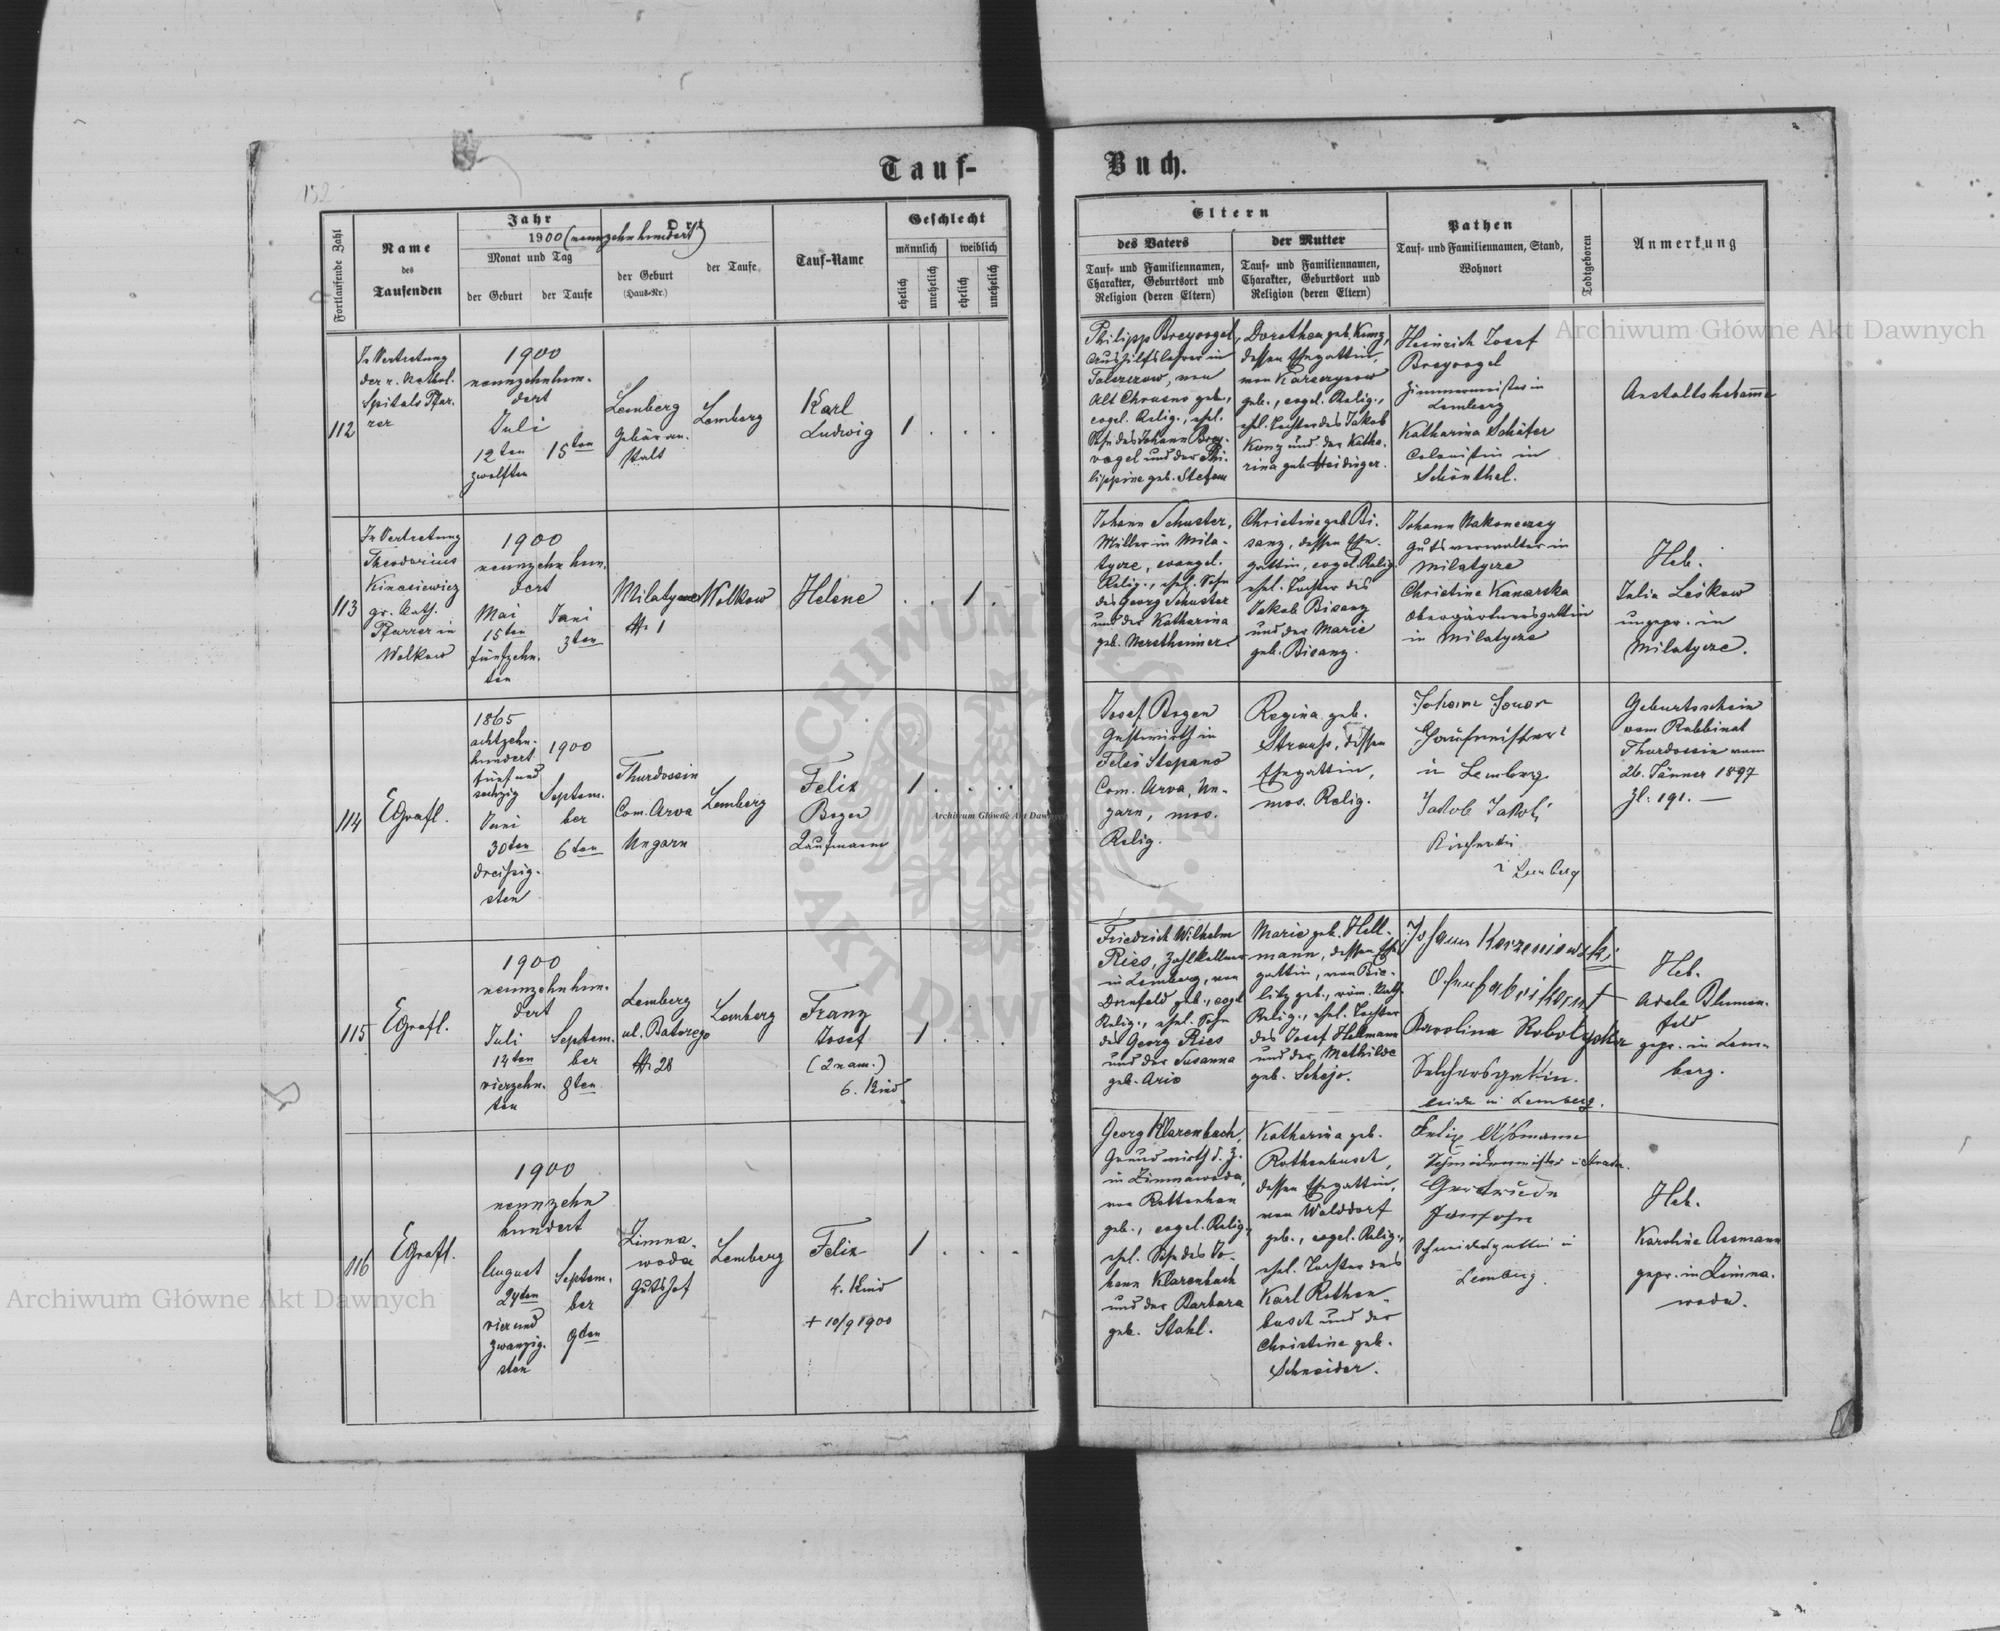 Tauf-
Buch.
152
Fortlaufende Zahl
Name
des
Taufenden
Jahr
1900 (neunzehnhundert)
Monat und Tag
der Geburt
der Taufe
Ort
der Geburt
(Haus-Nr.)
der Taufe
Tauf-Name
Geschlecht
männlich
weiblich
ehelich
unehelich
ehelich
unehelich
Eltern
des Vaters
Tauf- und Familiennamen,
Charakter, Geburtsort und
Religion (deren Eltern)
der Mutter
Tauf- und Familiennamen,
Charakter, Geburtsort und
Religion (deren Eltern)
Pathen
Tauf- und Familiennamen, Stand,
Wohnort
Todtgeboren
Anmerkung
112
In Vertretung
der r. Kathol.
Spitals Pfar-
rer
1900
neunzehnhun-
dert
Juli
12ten
zwölften
15ten
Lemberg
Gebäran-
stalt
Lemberg
Karl
Ludwig
1
Philipp Breyvogel,
Aushilfslehrer in
von
Alt Chrusno geb.,
evgel. Relig., ehel.
Sohn des Johann Brey-
vogel und der Phi-
lippine geb. Stefan
Dorothea geb. Kunz,
dessen Ehegattin,
von
geb., evgel. Relig.,
ehel. Tochter des Jakob
Kunz und der Katha-
rina geb. Heidinger.
Heinrich Josef
Breyvogel
Zimmermeister in
Lemberg
Katharina Schäfer
Colonistin in
Schönthal.
Anstaltshebamme
113
In Vertretung
Theodorius
gr. Kath.
Pfarrer in
Wolkow
1900
neunzehn hun-
dert
Mai
15ten
fünfzehn-
ten
Juni
3ten
Milatycze
№ 1
Wolkow
Helene
1
Johann Schuster,
Müller in Mila-
tycze, evangel.
Relig., ehel. Sohn
des Georg Schuster
und der Katharina
geb. Merstheimer
Christine geb. Bi-
sanz, dessen Ehe-
gattin, evgel. Relig.
ehel. Tochter des
Jakob Bisanz
und der Marie
geb. Bisanz.
Johann Nakoneczny
Gutsverwalter in
Milatycze
Christine Kanarska
Obergärtnersgattin
in Milatycze
Heb.
Julia Leśkow
ungepr. in
Milatycze.
114
EGrafl.
1865
achtzehn-
hundert
fünf und
sechzig
Juni
30ten
dreißig-
sten
1900
Septem-
ber
6ten
Thurdossin
Com. Arva
Ungarn
Lemberg
Felix
Bozen
Kaufmann
1
Josef Bozen
Gastwirth in
Felsö Stepano
Com. Arva, Un-
garn, mos.
Relig.
Regina geb.
Strauss, dessen
Ehegattin,
mos. Relig.
Johann
in Lemberg
Jakob
Lemberg
Geburtsschein
vom Rabbinat
Thurdossin vom
26. Jänner 1897
Zl: 191. —
115
EGrafl.
1900
neunzehnhun-
dert
Juli
14ten
vierzehn-
ten
Septem-
ber
8ten
Lemberg
ul. Batorego
№ 28
Lemberg
Franz
Josef
(2 nam.)
6. Kind
1
Friedrich Wilhelm
Ries, Zahlkellner
in Lemberg, von
Dornfeld geb., evgel
Relig., ehel. Sohn
des Georg Ries
und der Susanna
geb. Ario
Marie geb. Hell-
mann, dessen Ehe-
gattin, von Bie-
litz geb., röm. Kath.
Relig., ehel. Tochter
des Josef Hellmann
und der Mathilde
geb. Schejo.
Johann Korzeniowski
Ofenfabrikant
Karolina Robotycka
Selchersgattin.
beide in Lemberg.
Heb.
Adele Blumen-
feld
gepr. in Lem-
berg.
116
EGrafl.
1900
neunzehn
hundert
August
24ten
vier und
zwanzig-
sten
Septem-
ber
9ten
Zimna-
woda
Gutshof
Lemberg
Felix
4. Kind
+ 10/9 1900
1
Georg Klarenbach,
Grundwirth d. Z.
in Zimnawoda,
von Rottenhan
geb., evgel. Relig.,
ehel. Sohn des Jo-
hann Klarenbach
und der Barbara
geb. Stahl.
Katharina geb.
Rothenbusch,
dessen Ehegattin,
von Walddorf
geb., evgel. Relig.,
ehel. Tochter des
Karl Rothen-
busch und der
Christine geb.
Schneider.
Felix Assmann
Schneidermeister
Gertrude
Schneidersgattin in
Lemberg.
Heb.
Karoline Assmann
gepr. in Zimna-
woda.
Archiwum Główne Akt Dawnych
Archiwum Główne Akt Dawnych
Archiwum Główne Akt Dawnych
ARCHIWUM GŁÓWNE · AKT DAWNYCH ·